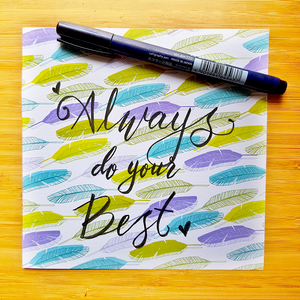 Always
do your
Best